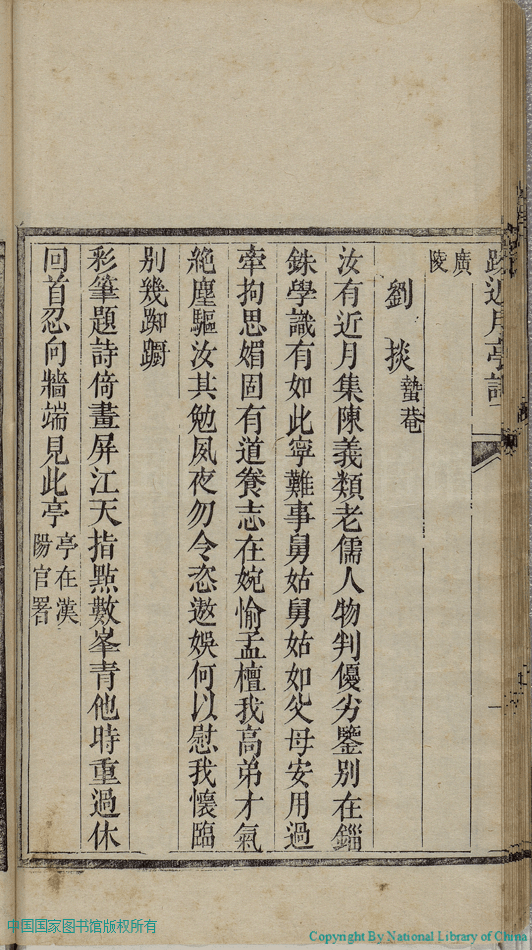 近月亭詩
廣陵
劉掞蟄菴
汝有近月集陳義類老儒人物判優劣鑒別在錙
銖學識有如此寧難事舅姑舅姑如父母安用過
牽拘思媚固有道養志在婉愉孟檀我高弟才氣
絶塵驅汝其勉夙夜勿令恣遨娛何以慰我懷臨
別幾踟躕
彩筆題詩倚畫屏江天指點數峯青他時重過休
回首忍向牆端見此亭亭在漢陽官署
中国国家图书馆版权所有
Copyright By National Library of China